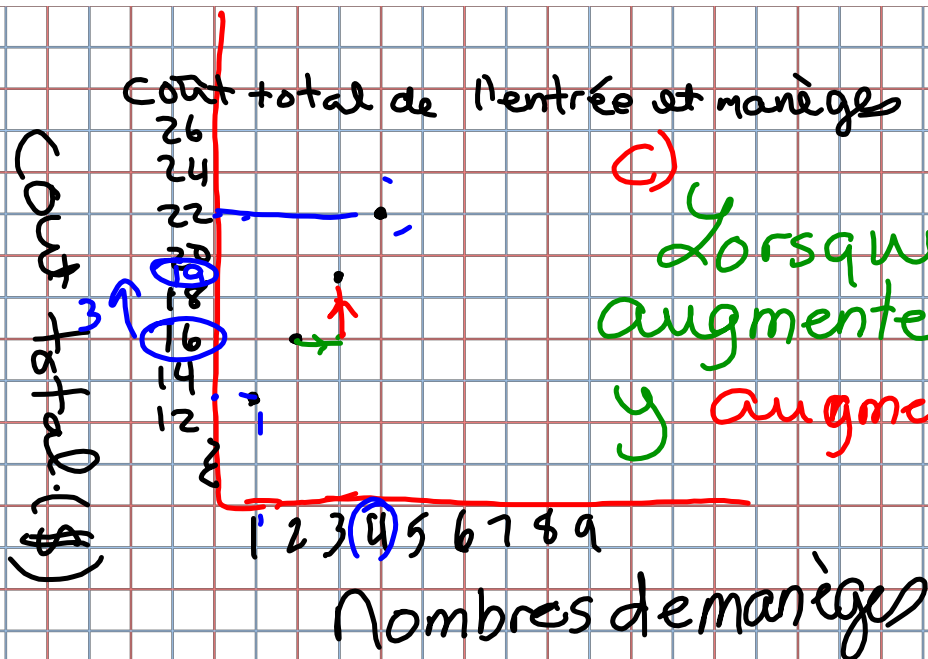 Coût total de l'entrée et manèges
26
24
22
20
19
18
3
16
14
12
Coût total ($)
1 2 3 4 5 6 7 8 9
Nombres de manèges
c)
Lorsqu
augmente
y augme